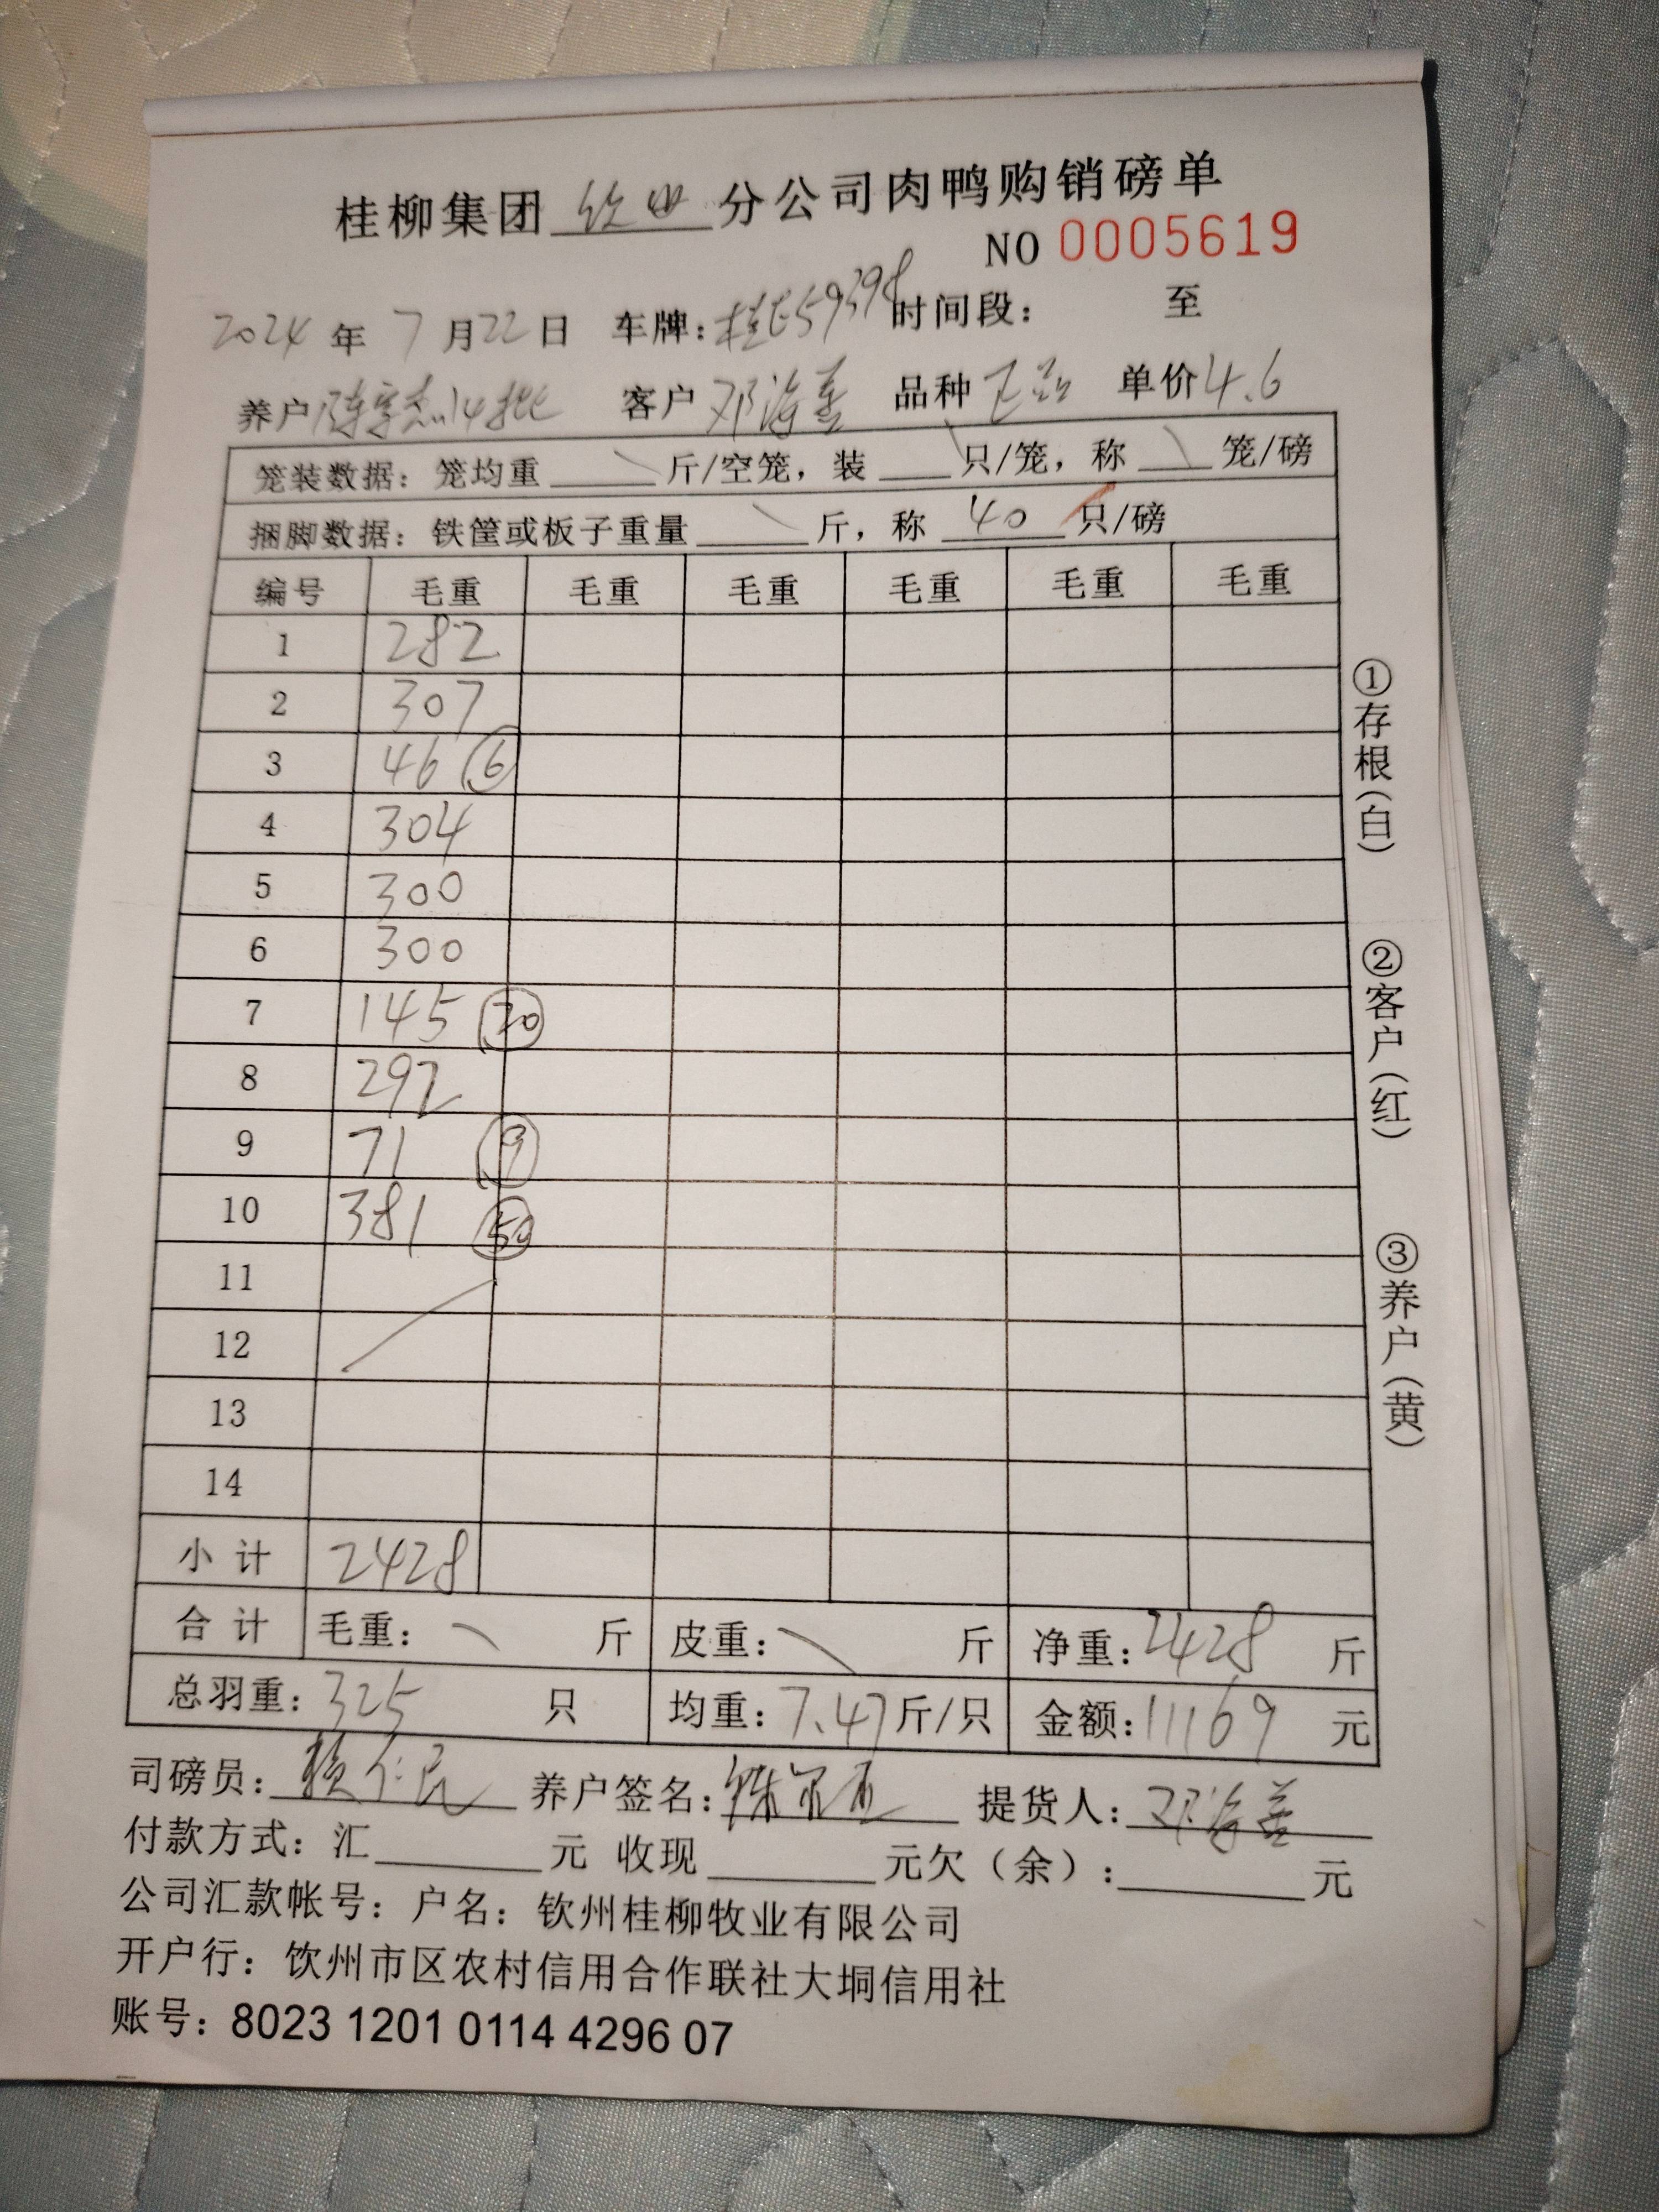 桂柳集团 钦州 分公司肉鸭购销磅单
NO 0005619
2024 年 7 月 22 日 车牌: 桂E59398 时间段: 至
养户 陈家杰14批 客户 邓海善 品种 单价 4.6
笼装数据: 笼均重 斤/空笼, 装 只/笼, 称 笼/磅
捆脚数据: 铁筐或板子重量 斤, 称 40 只/磅
编号 毛重 毛重 毛重 毛重 毛重 毛重
1 282
2 307
3 46 ⑥
4 304
5 300
6 300
7 145 ⑳
8 292
9 71 ⑨
10 381 ㊿
11
12
13
14
小计 2428
合计 毛重: 斤 皮重: 斤 净重: 2428 斤
总羽重: 325 只 均重: 7.47 斤/只 金额: 11169 元
司磅员: 养户签名: 提货人: 邓海善
付款方式: 汇 元 收现 元欠(余): 元
公司汇款帐号: 户名: 钦州桂柳牧业有限公司
开户行: 钦州市区农村信用合作联社大垌信用社
账号: 8023 1201 0114 4296 07
①存根(白)
②客户(红)
③养户(黄)